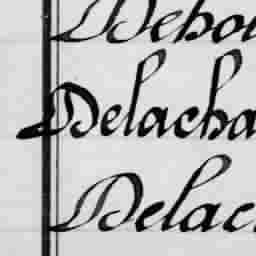 Debou
Delacha
Delac